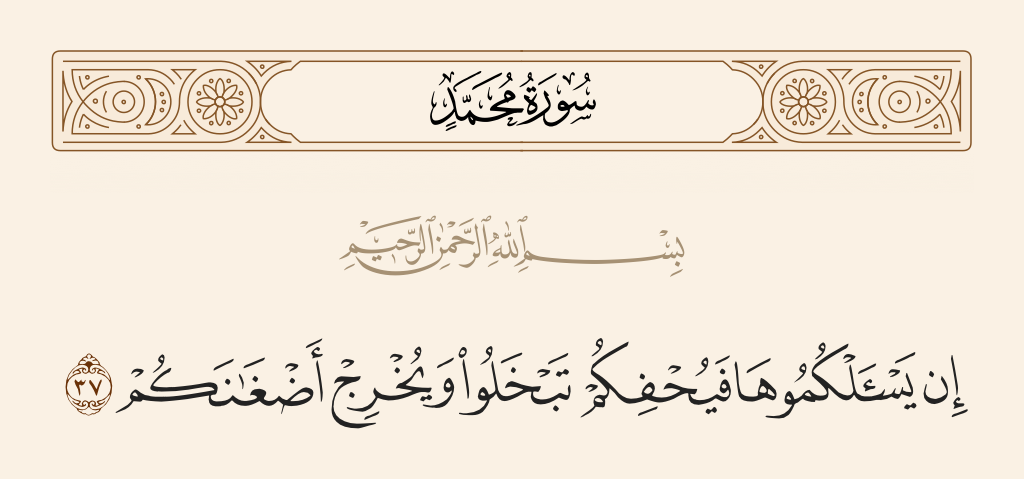 سُورَةُ مُحَمَّدٍ
بِسْمِ ٱللَّهِ ٱلرَّحْمَٰنِ ٱلرَّحِيمِ
إِن يَسْـَٔلْكُمُوهَا فَيُحْفِكُمْ تَبْخَلُوا۟ وَيُخْرِجْ أَضْغَـٰنَكُمْ ٣٧